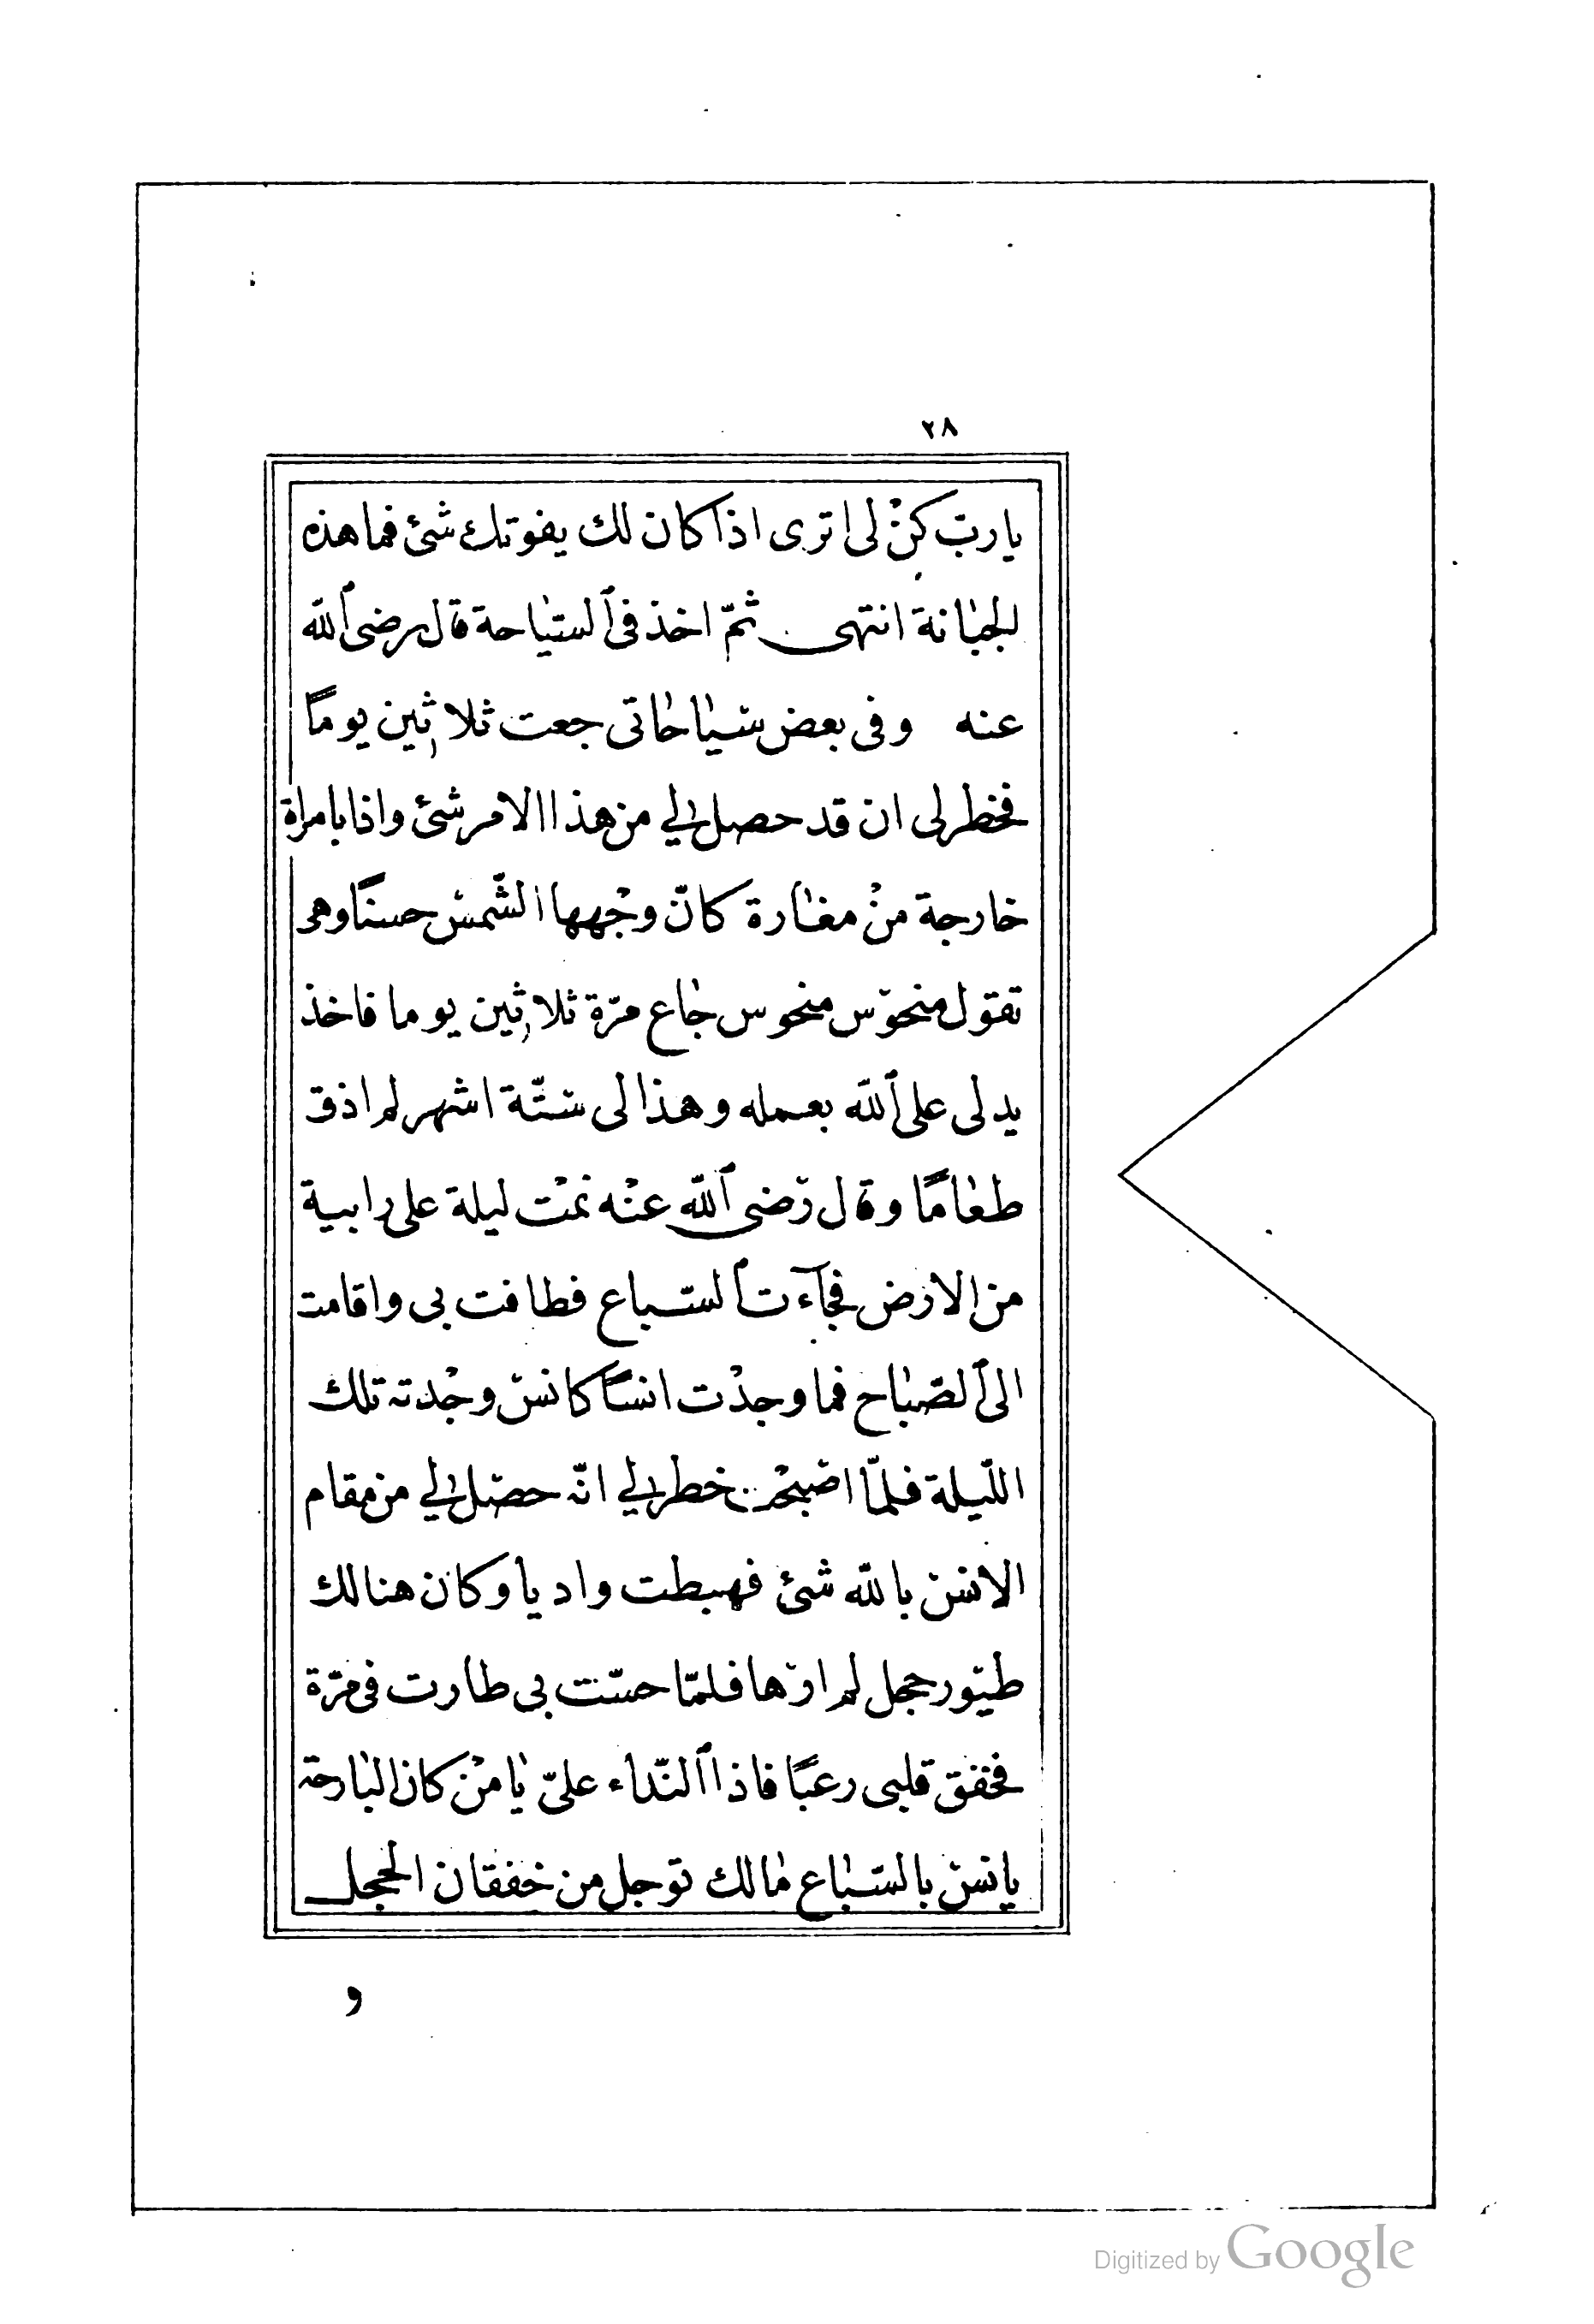 ٢٨
يا ربّ كنْ لى ا ترى اذا كان لك يفوتك شئ فما هذه
الجبانة انتهى ثمّ اخذ فى السّياحة قال رضى الله
عنه وفى بعض سياحاتى جعت ثلاثين يوماً
فخطر لى ان قد حصل لي من هذا الامر شئ واذا بامراة
خارجة منْ مغارة كانّ وجْهها الشّمس حسنًا وهى
تقول منحوس منحوس جاع مرّة ثلاثين يوما فاخذ
يدلى على الله بعمله وهذا لى ستّة اشهر لم اذق
طعامًا وقال رضى الله عنْه نمْت ليلة على رابية
من الارض فجآءت السّباع فطافت بى واقامت
الى الصّباح فما وجدْت انسًا كانس وجْدته تلك
اللّيلة فلمّا اصبحْت خطر لي انّه حصل لي من مقام
الانس بالله شئ فهبطت واديا وكان هنالك
طيور حجل لم ارها فلمّا حسّت بى طارت فى مرّة
فخفق قلبى رعبًا فاذا النّداء علىّ يا منْ كان البارحة
يانس بالسّباع مالك توجل من خفقان الحجل
و
Digitized by Google